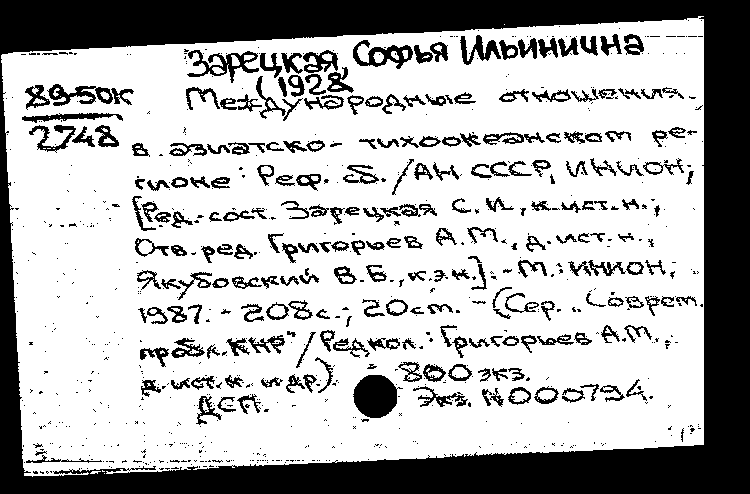 Зарецкая, Софья Ильинична
(1928
89-50к
2748
Международные отношения
в азиатско-тихоокеанском ре-
гионе: Реф. сб. /АН СССР, ИНИОН;
[Ред.-сост. Зарецкая С.И., к.ист.н.;
Отв. ред. Григорьев А.М., д.ист.н.,
Якубовский В.Б., к.э.н.]. - М.: ИНИОН,
1987. - 208с.; 20см. - (Сер. "Соврем.
пробл. КНР" / Редкол.: Григорьев А.М.,
д.ист.н. и др.). 800 экз.
ДСП. Экз. N000794.